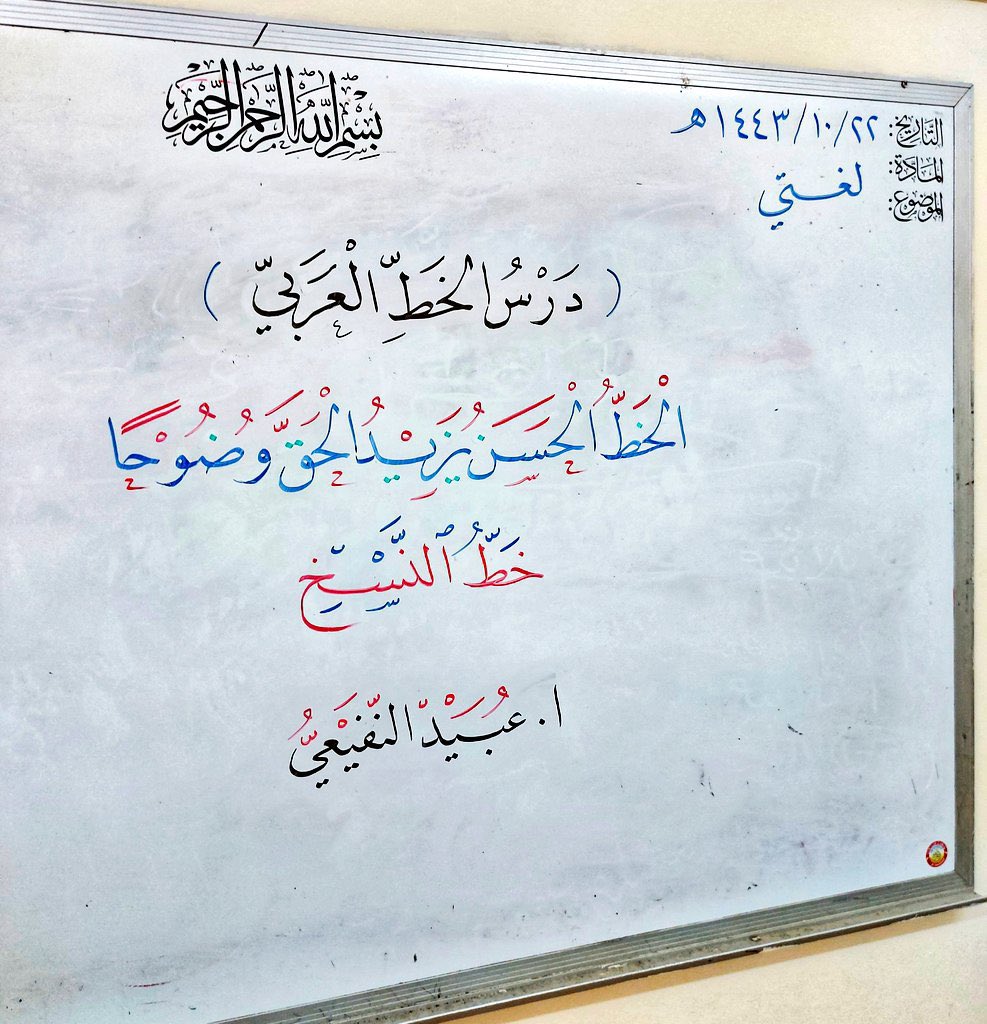 بِسْمِ اللَّهِ الرَّحْمَٰنِ الرَّحِيمِ
التَّارِيخ: ٢٢/١٠/١٤٤٣هـ
المَادَّة: لغتي
الموْضوع:
( دَرْسُ الخَطِّ الْعَرَبيّ )
الْخَطُّ الْحَسَنُ يَزِيْدُ الْحَقَّ وَضُوُوْحًا
خَطُّ ٱلنَّسْخِ
ا. عُبَيْد النّفيَعيُّ